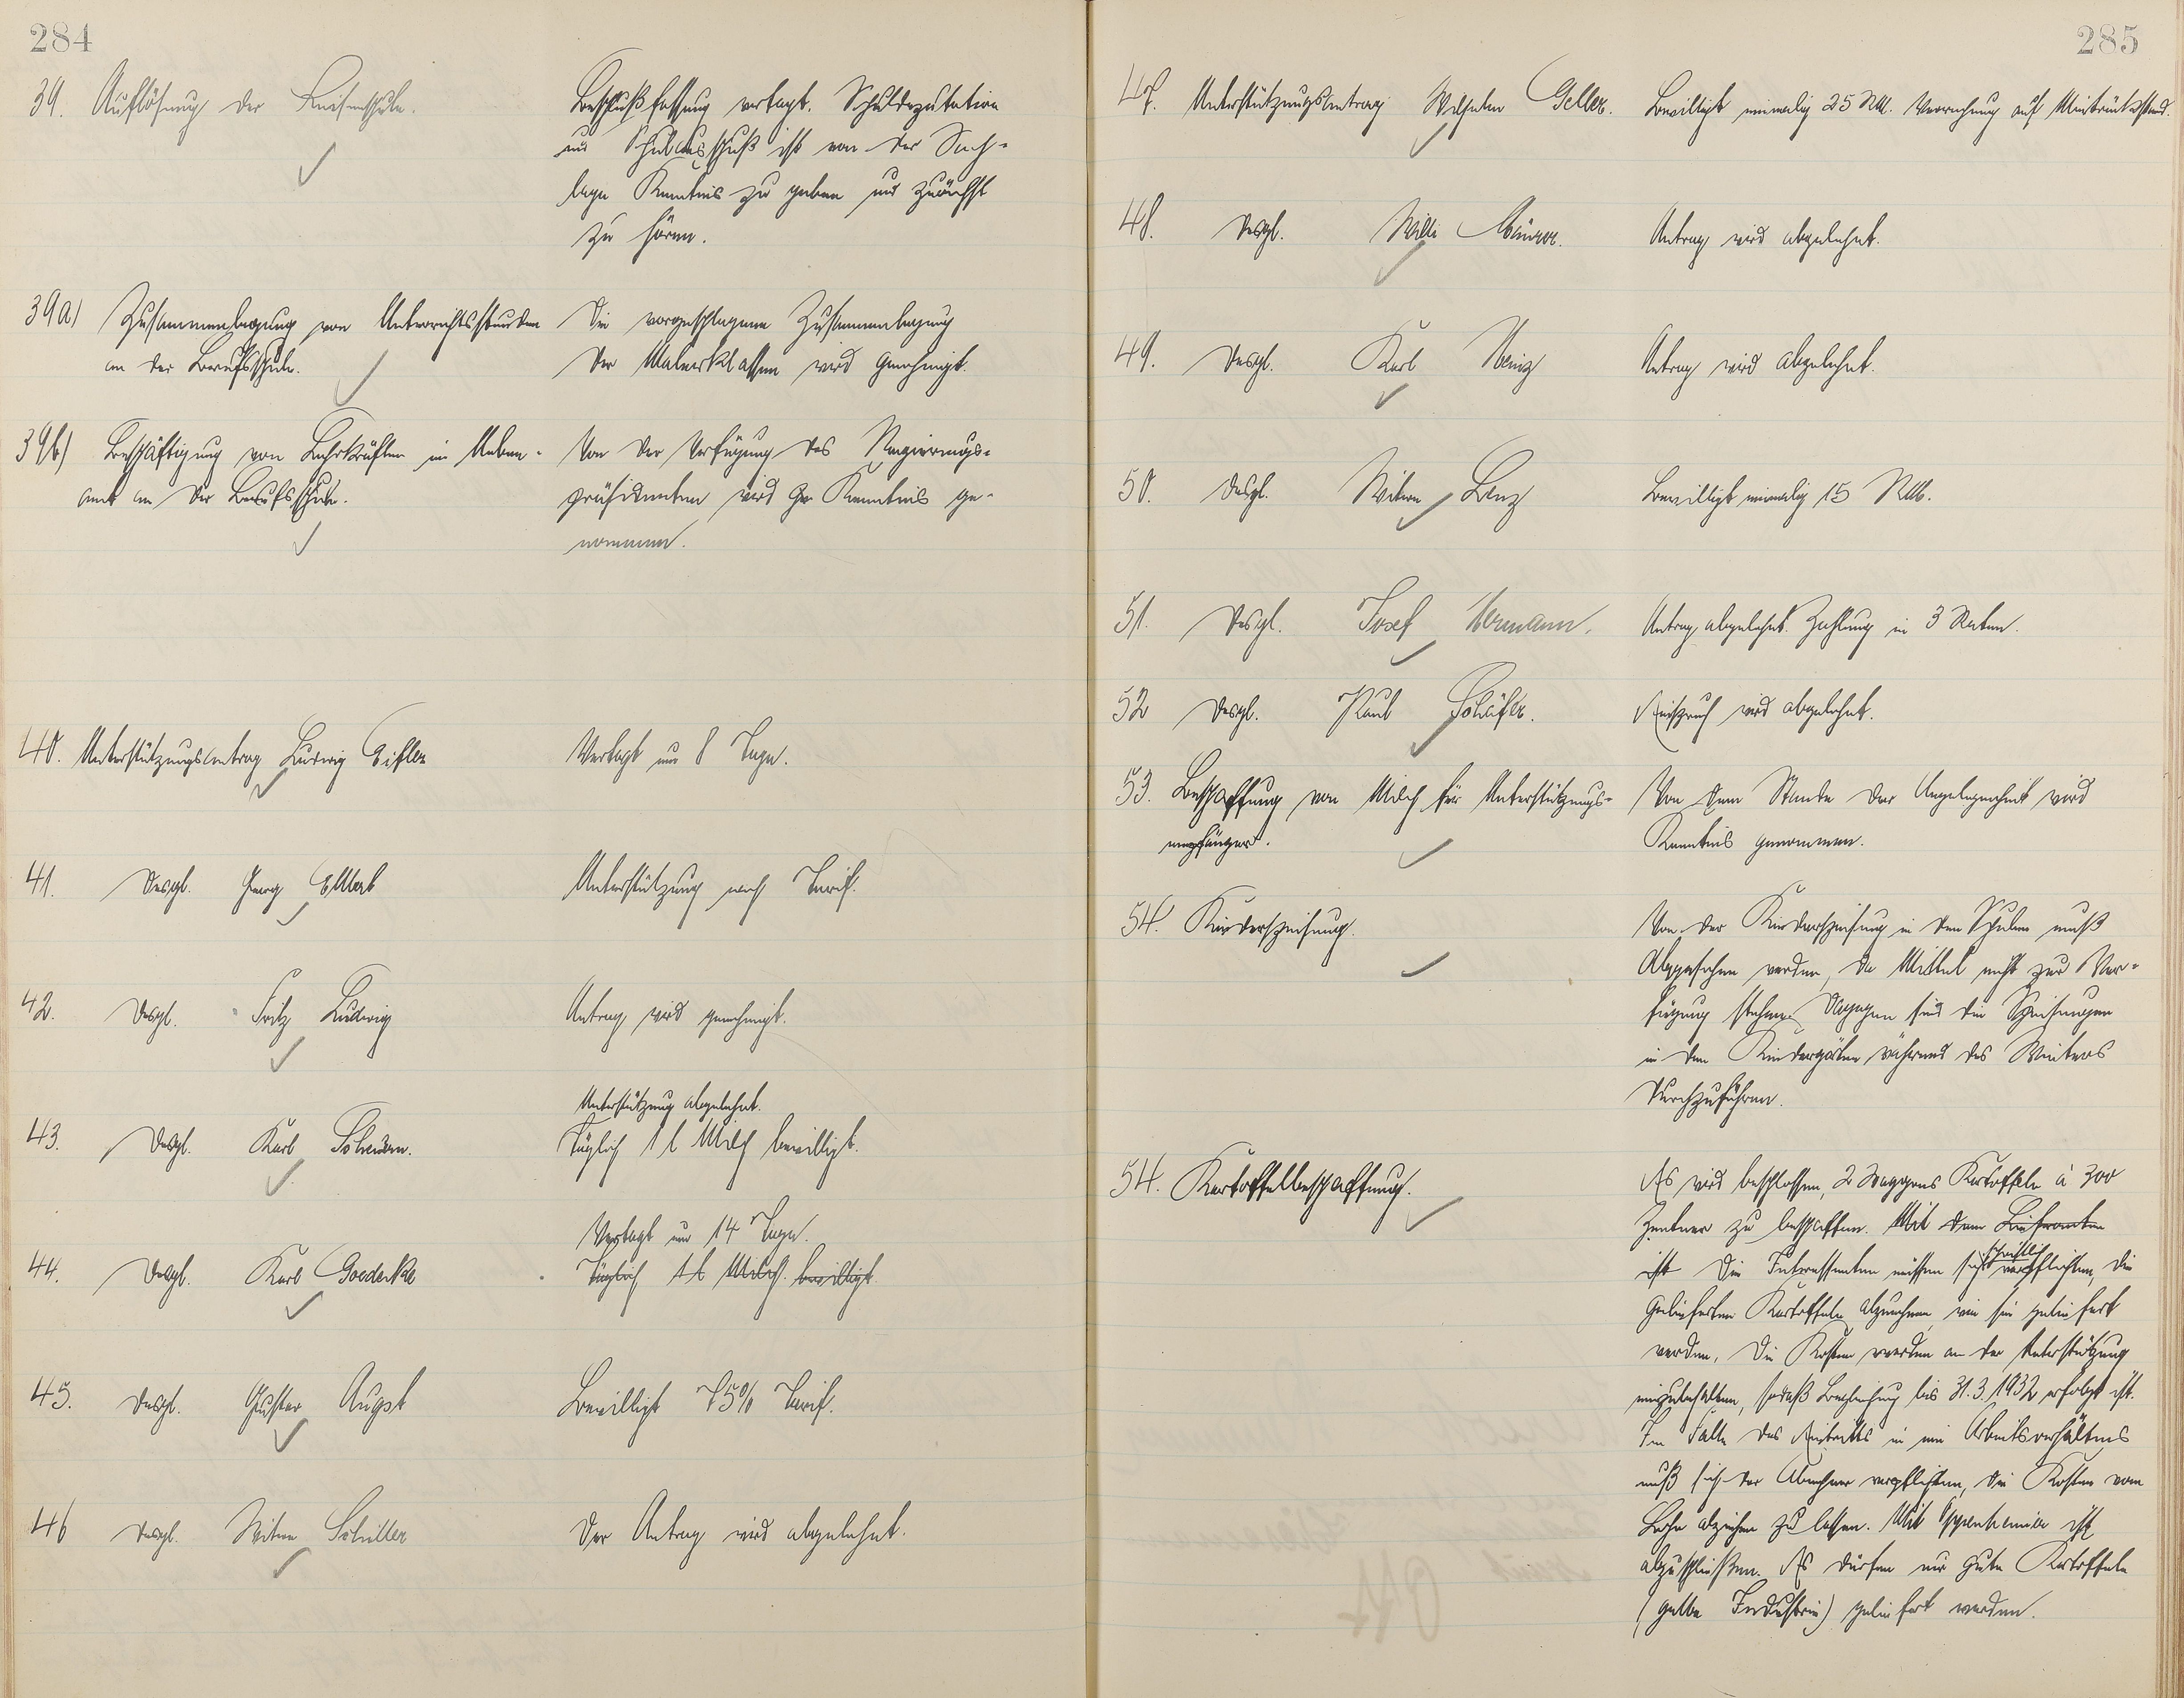 284
39. Auflösung der Luisenschule.
Beschlußfassung vertagt. Schuldeputation
und Schulausschuß ist von der Sach-
lage Kenntnis zu geben und zunächst
zu hören.
39a) Zusammenlegung von Unterrichtsstunden
an der Berufsschule.
Die vorgeschlagene Zusammenlegung
der Malerklassen wird genehmigt.
39b) Beschäftigung von Lehrkräften im Neben-
amt an der Berufsschule.
Von der Verfügung des Regierungs-
präsidenten wird Kenntnis ge-
nommen.
40. Unterstützungsantrag Ludwig Eifler
Vertagt um 8 Tage.
41. Desgl. Georg Ellert
Unterstützung nach Tarif.
42. Desgl. Fritz Ludwig
Antrag wird genehmigt.
Unterstützung abgelehnt.
43. Desgl. Karl
Täglich 1 l Milch bewilligt.
Vertagt um 14 Tage.
44. Desgl. Karl Goedecke
Täglich 1 l Milch bewilligt.
45. Desgl. Gustav Augst
Bewilligt 75% Tarif.
46 Desgl. Witwe Schiller
Der Antrag wird abgelehnt.
285
47. Unterstützungsantrag Wilhelm Geller.
Bewilligt einmalig 25 RM. Verrechnung auf Mietrückstand.
48. Desgl. Willi
Antrag wird abgelehnt.
49. Desgl. Karl
Antrag wird abgelehnt.
50. Desgl. Witwe Benz
Bewilligt einmalig 15 RM.
51. Desgl. Josef Hermann.
Antrag abgelehnt. Zahlung in 3 Raten.
52 Desgl. Paul Schäfer.
Einspruch wird abgelehnt.
53. Beschaffung von Milch für Unterstützungs-
empfänger.
Von dem Stande der Angelegenheit wird
Kenntnis genommen.
54. Kinderspeisung.
Von der Kinderspeisung in den Schulen muß
abgesehen werden, da Mittel nicht zur Ver-
fügung stehen. Dagegen sind die Speisungen
in den Kindergärten während des Winters
durchzuführen.
54. Kartoffelbeschaffung.
Es wird beschlossen, 2 Waggons Kartoffeln à 300
Zentner zu beschaffen. Mit dem Lieferanten
schriftlich
ist Die Interessenten müssen sich verpflichten, die
gelieferten Kartoffeln abzunehmen wie sie geliefert
werden. Die Kosten werden an der Unterstützung
einzubehalten, sodaß Bezahlung bis 31.3.1932 erfolgt ist.
Im Falle des Eintritts in ein Arbeitsverhältnis
muß sich der Abnehmer verpflichten, die Kosten vom
Lohn abziehen zu lassen. Mit Oppenheimer ist
abzuschließen. Es dürfen nur gute Kartoffeln
(gelbe Industrie) geliefert werden.